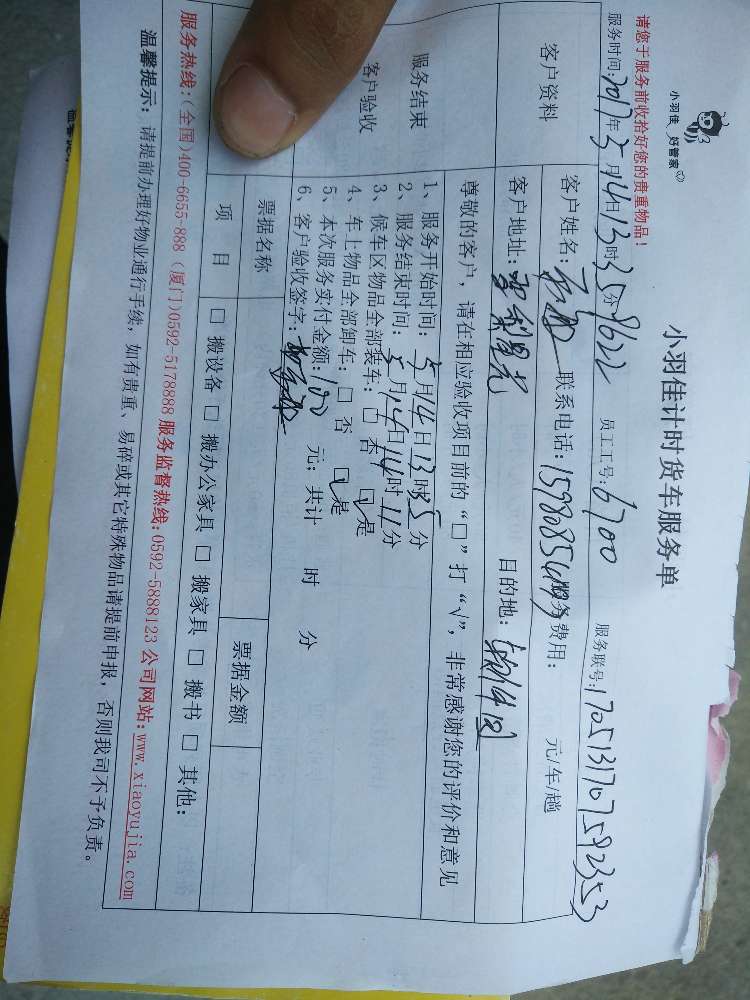 小羽佳 好管家
小羽佳计时货车服务单
请您于服务前收拾好您的贵重物品！
服务时间：2017年5月14日13时35分 9622 员工工号：6700 服务联号：1705131707592353
客户资料
客户姓名： 联系电话： 服务费用： 元/车/趟
客户地址： 目的地：
服务结束
客户验收
尊敬的客户，请在相应验收项目前的“□”打“√”，非常感谢您的评价和意见
1、服务开始时间：5月14日13时35分
2、服务结束时间：5月14日14时11分
3、候车区物品全部装车：□ 否 ☑是
4、车上物品全部卸车：□ 否 ☑是
5、本次服务实付金额：100 元；共计 时 分
6、客户验收签字：
票据名称 票据金额
项 目 □ 搬设备 □ 搬办公家具 □ 搬家具 □ 搬书 □ 其他：
服务热线：(全国)400-6655-888 (厦门)0592-5178888 服务监督热线：0592-5888123 公司网站：www.xiaoyujia.com
温馨提示：请提前办理好物业通行手续，如有贵重、易碎或其它特殊物品请提前申报，否则我司不予负责。